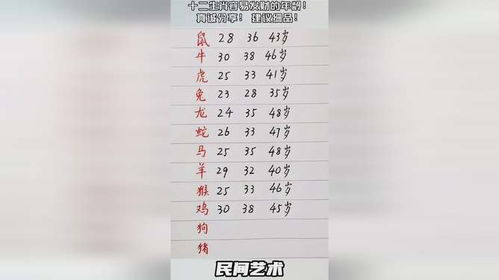 十二生肖容易发财的年龄!
真诚分享! 建议细品!
鼠 28 36 43岁
牛 30 38 46岁
虎 25 33 41岁
兔 23 28 35岁
龙 24 35 48岁
蛇 26 33 47岁
马 25 35 48岁
羊 29 32 40岁
猴 25 33 46岁
鸡 30 38 45岁
狗
猪
民间艺术